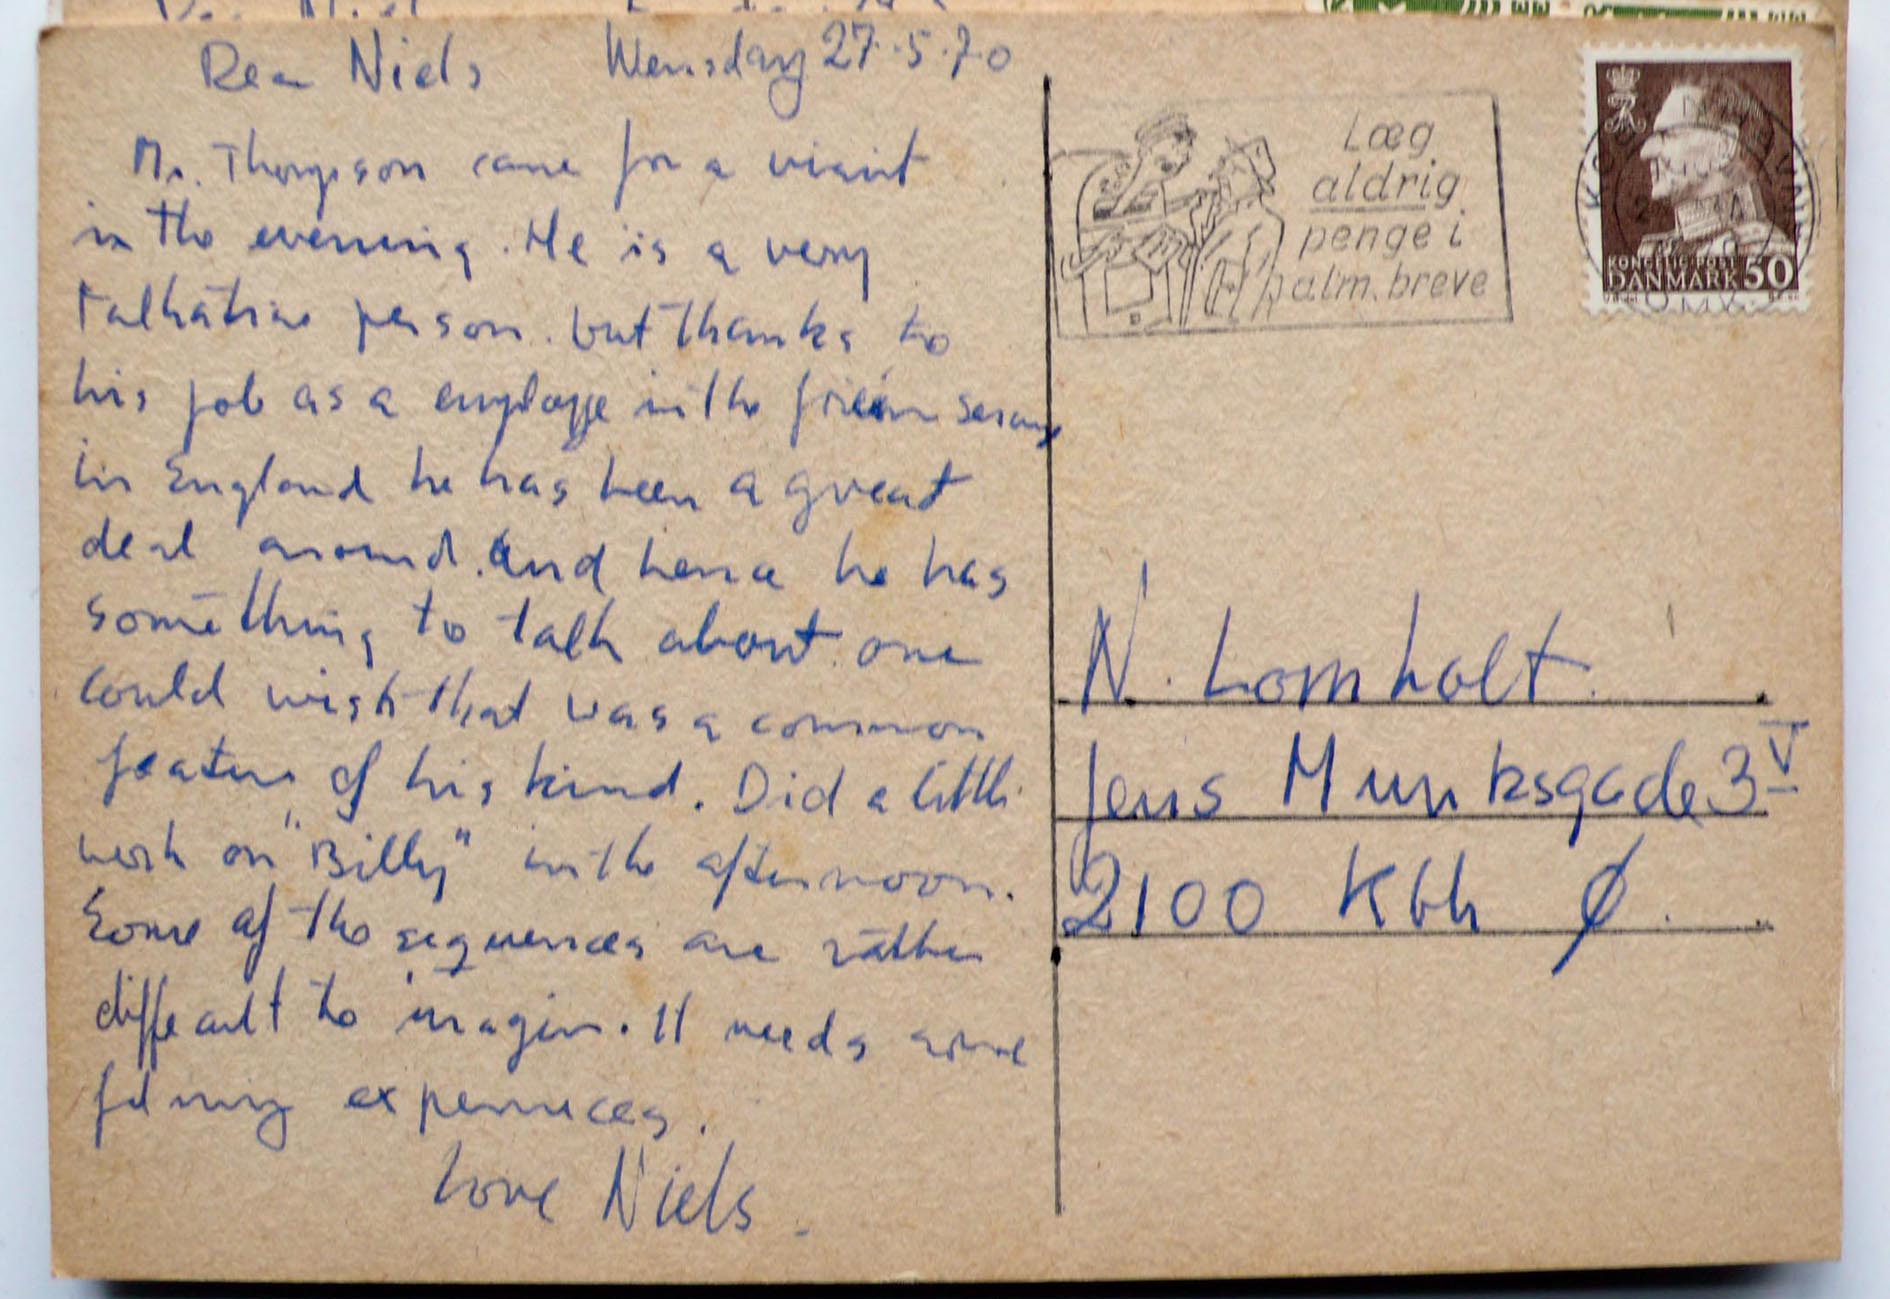 Dear Niels Wensday 27.5.70
Mr. Thompson came for a visit
in the evening. He is a very
Talkative person. but thanks to
his job as a employe in the
in England he has been a great
deal around. And hence he has
something to talk about. one
could wish that was a common
feature of his kind. Did a little
work on "Billy" in the afternoon.
Some of the sequences are rather
difficult to imagin. It needs some
filming
Love Niels.
Læg
aldrig
penge i
alm. breve
KONGELIG POST
DANMARK 50
N. Lomholt.
Jens Munksgade 3 V
2100 Kbh Ø.